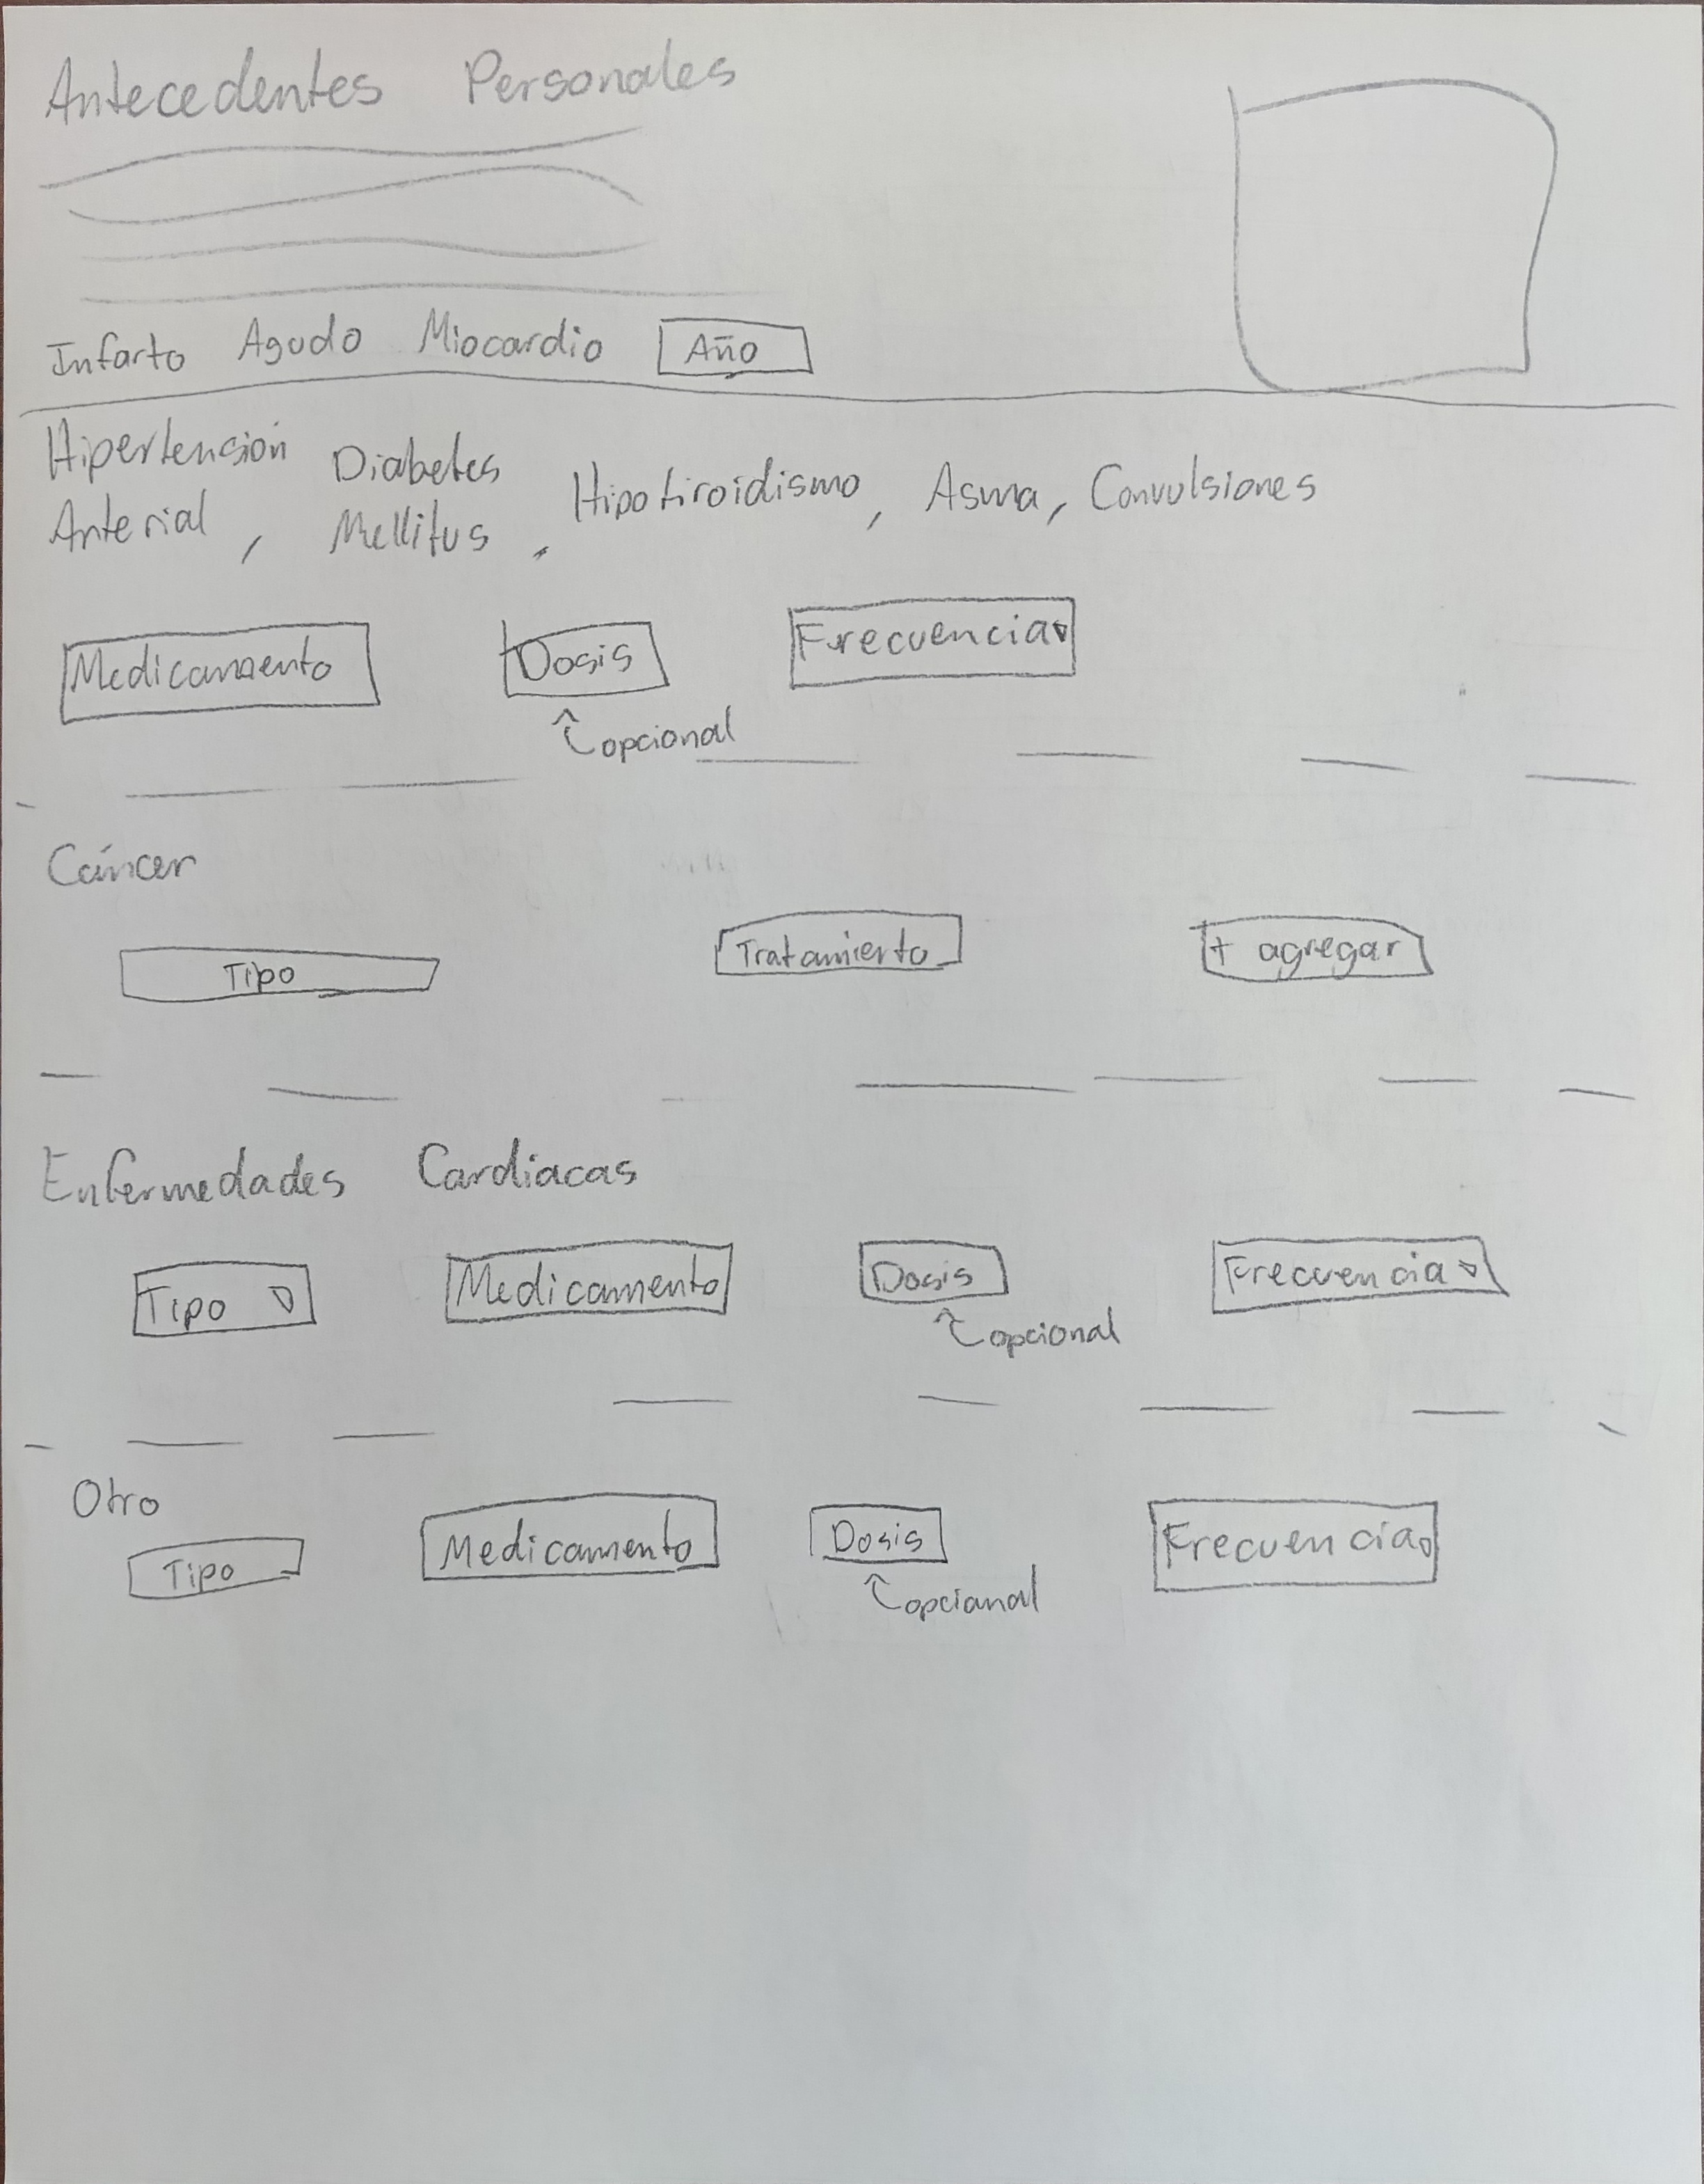 Antecedentes Personales
Infarto Agudo Miocardio Año
Hipertensión Diabetes
Anterial, Mellitus, Hipotiroidismo, Asma, Convulsiones
Medicamento Dosis Frecuencia
opcional
Cáncer
Tipo Tratamiento + agregar
Enfermedades Cardiacas
Tipo Medicamento Dosis Frecuencia
opcional
Otro
Tipo Medicamento Dosis Frecuencia
opcional